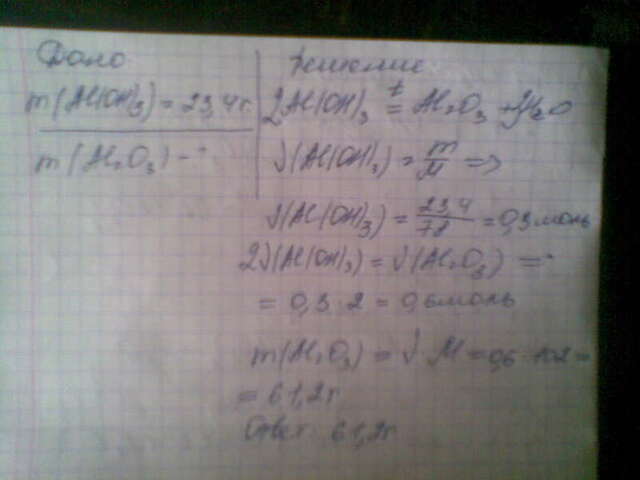 Дано
m(Al(OH)₃) = 23,4 г
m(Al₂O₃) - ?
Решение
2Al(OH)₃ =ᵗ Al₂O₃ + 3H₂O
ν(Al(OH)₃) = m/M =>
ν(Al(OH)₃) = 23,4/78 = 0,3 моль
2ν(Al(OH)₃) = ν(Al₂O₃) =>
= 0,3 · 2 = 0,6 моль
m(Al₂O₃) = ν · M = 0,6 · 102 =
= 61,2 г
Ответ: 61,2 г